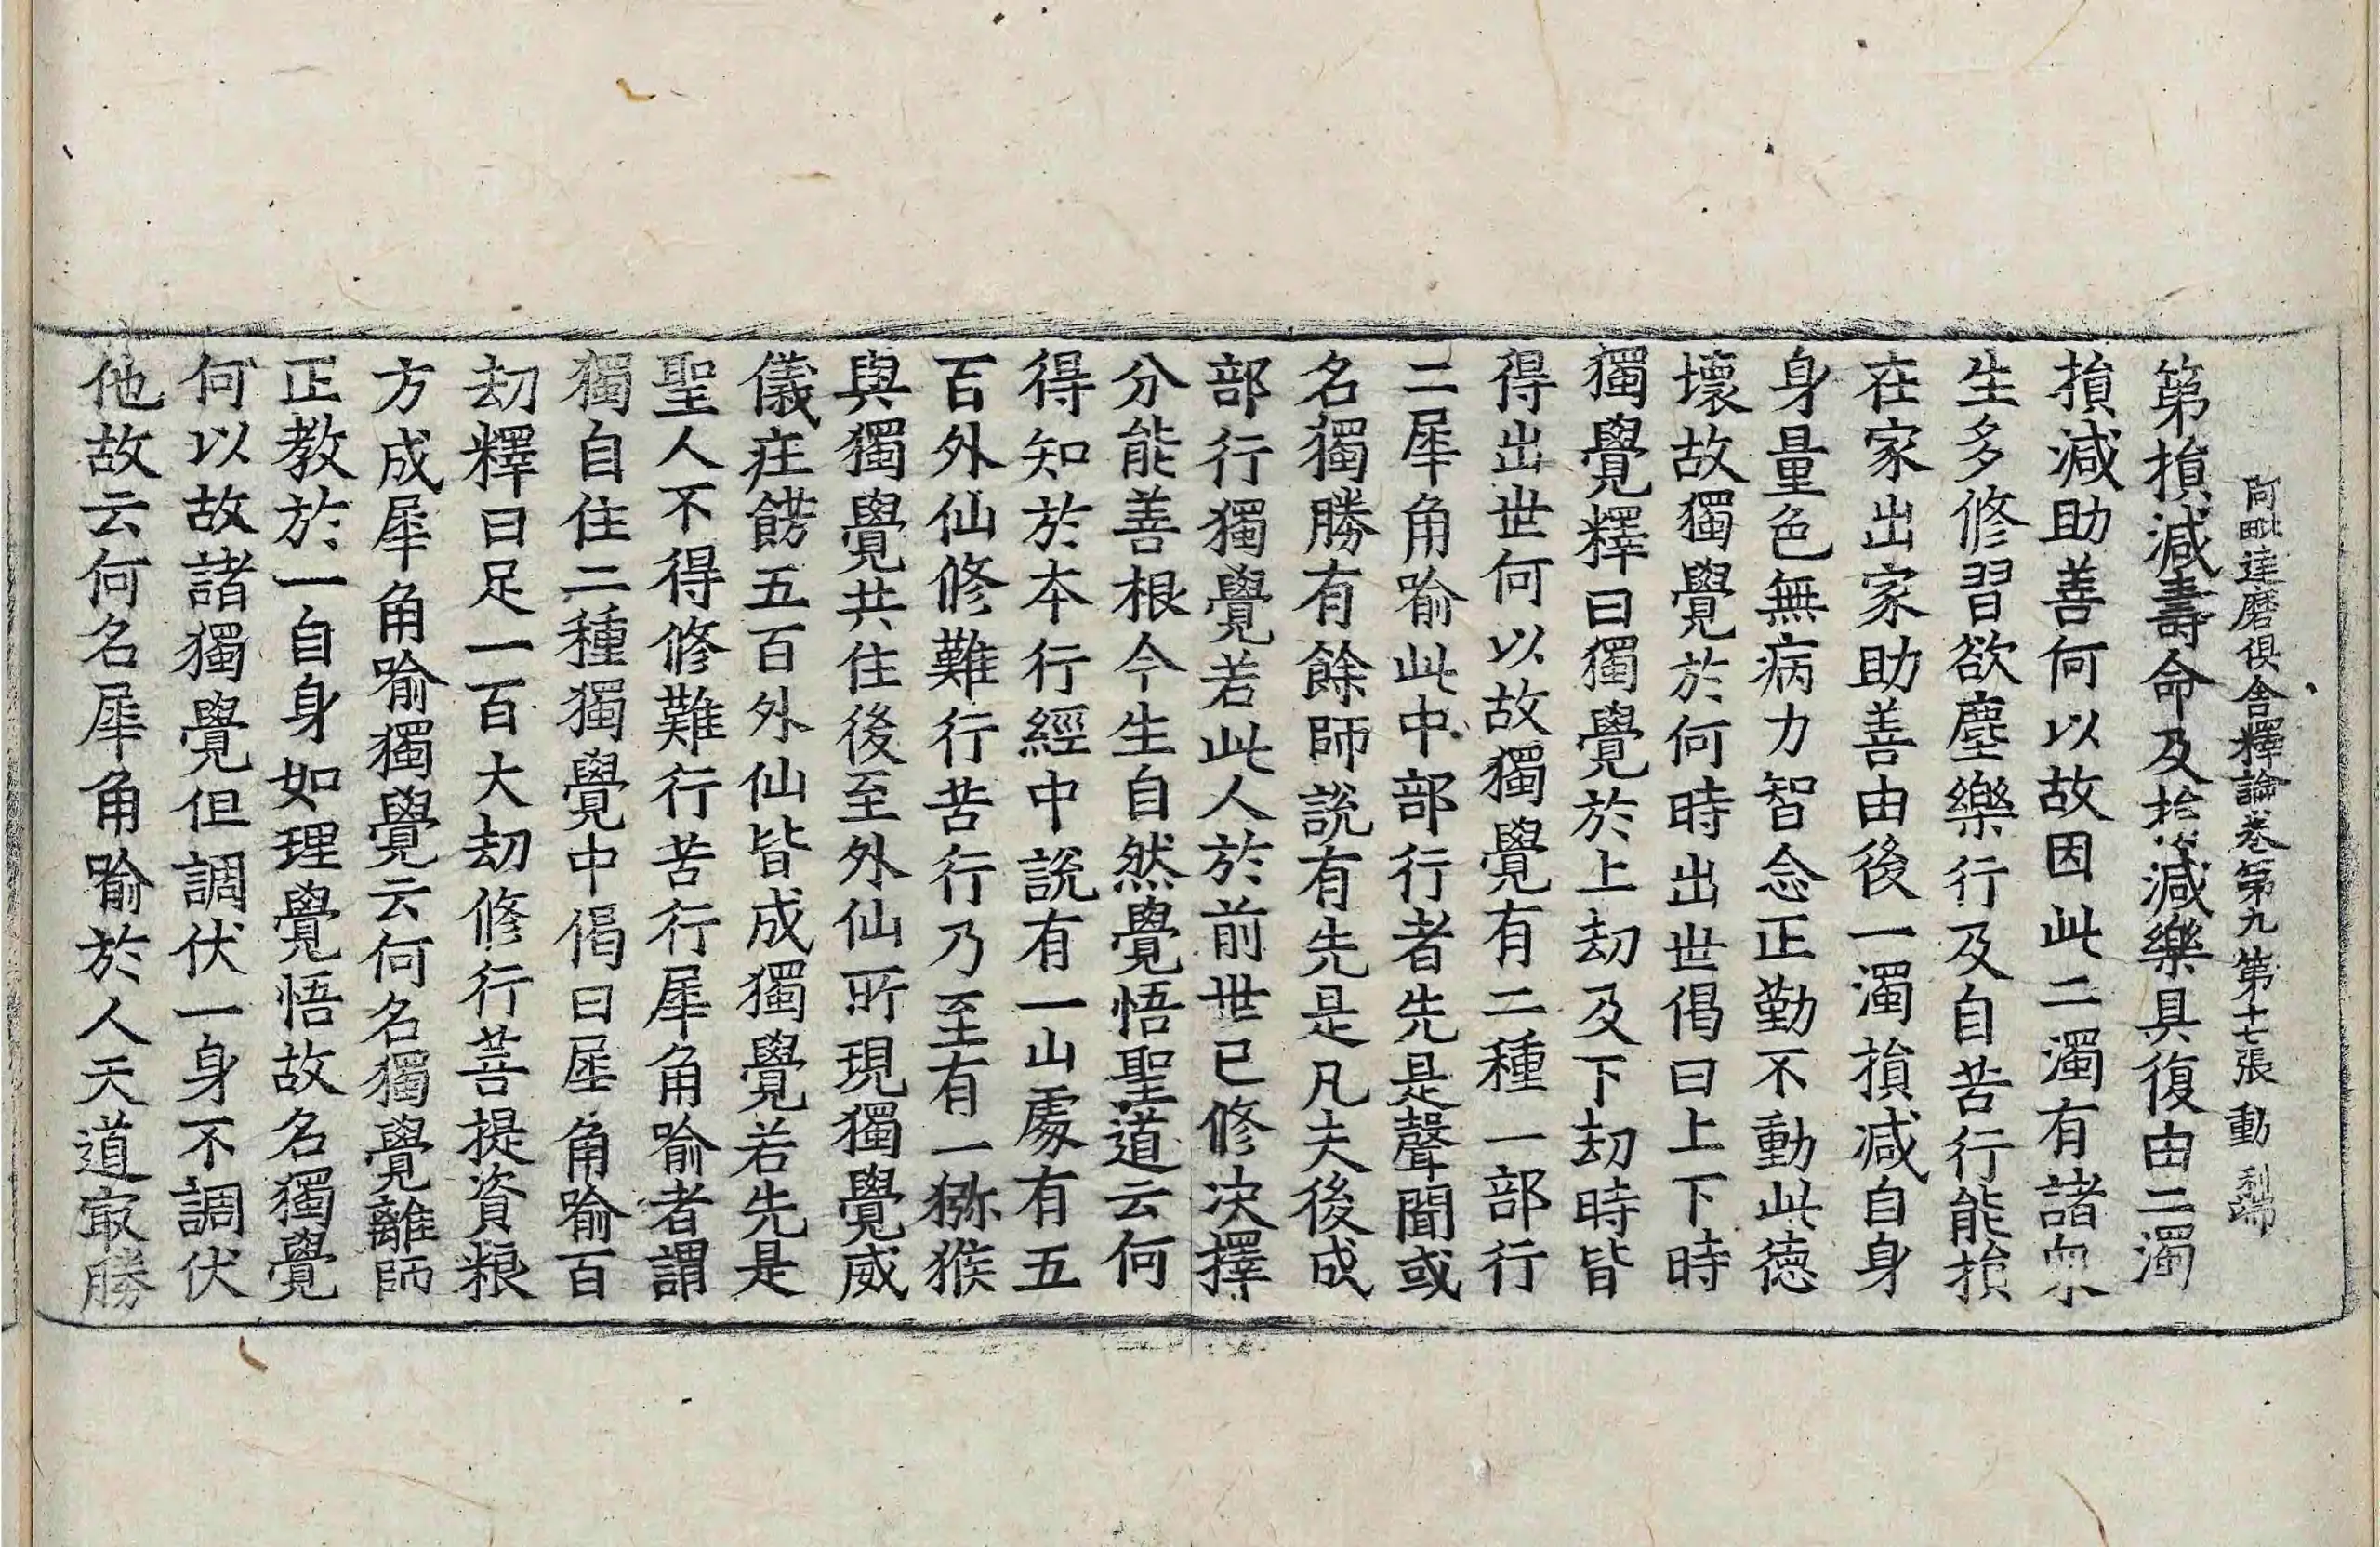 阿毗達磨俱舍釋論卷第九 第十七張 動 利端
第損減壽命及損減樂具復由二濁
損減助善何以故因此二濁有諸衆
生多修習欲塵樂行及自苦行能損
在家出家助善由後一濁損减自身
身量色無病力智念正勤不動此德
壞故獨覺於何時出世偈曰上下時
獨覺釋曰獨覺於上劫及下劫時皆
得出世何以故獨覺有二種一部行
二犀角喻此中部行者先是聲聞或
名獨勝有餘師說有先是凡夫後成
部行獨覺若此人於前世已修决擇
分能善根今生自然覺悟聖道云何
得知於本行經中說有一山處有五
百外仙修難行苦行乃至有一獼猴
與獨覺共住後至外仙所現獨覺威
儀疘餝五百外仙皆成獨覺若先是
聖人不得修難行苦行犀角喻者謂
獨自住二種獨覺中偈曰犀角喻百
劫釋曰足一百大劫修行菩提資粮
方成犀角喻獨覺云何名獨覺離師
正教於一自身如理覺悟故名獨覺
何以故諸獨覺但調伏一身不調伏
他故云何名犀角喻於人天道㝡勝